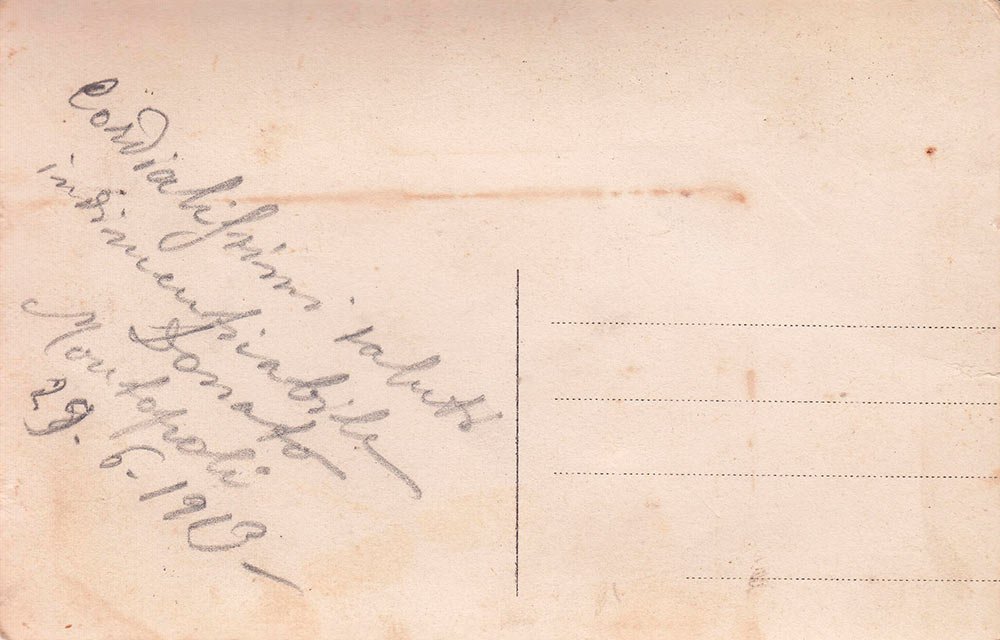 Cordialissimi saluti
indimentiabile
Donato
Montopoli
29. 6. 1913 –